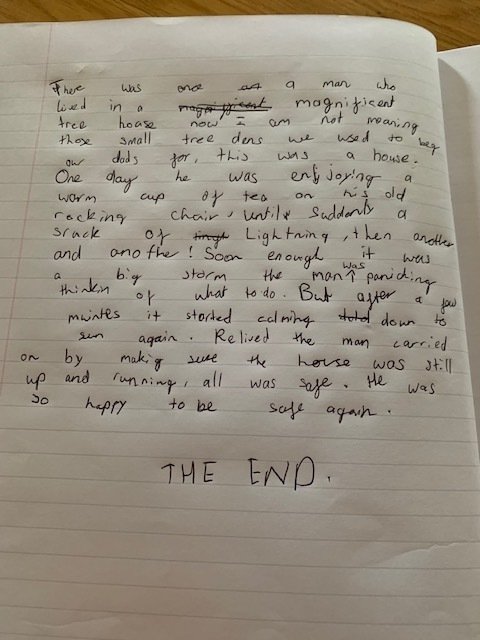 There was once a man who
lived in a magnificent
tree house now I am not meaning
those small tree dens we used to beg
our dads for, this was a house.
One day he was enjoying a
warm cup of tea on his old
rocking chair, until suddanly a
srack of Lightning, then another
and another! Soon enough it was
a big storm the man was panicking
thinkin of what to do. But after a few
muintes it started calming down to
sun again. Relived the man carried
on by making sure the house was still
up and running, all was safe. He was
so happy to be safe again.
THE END.